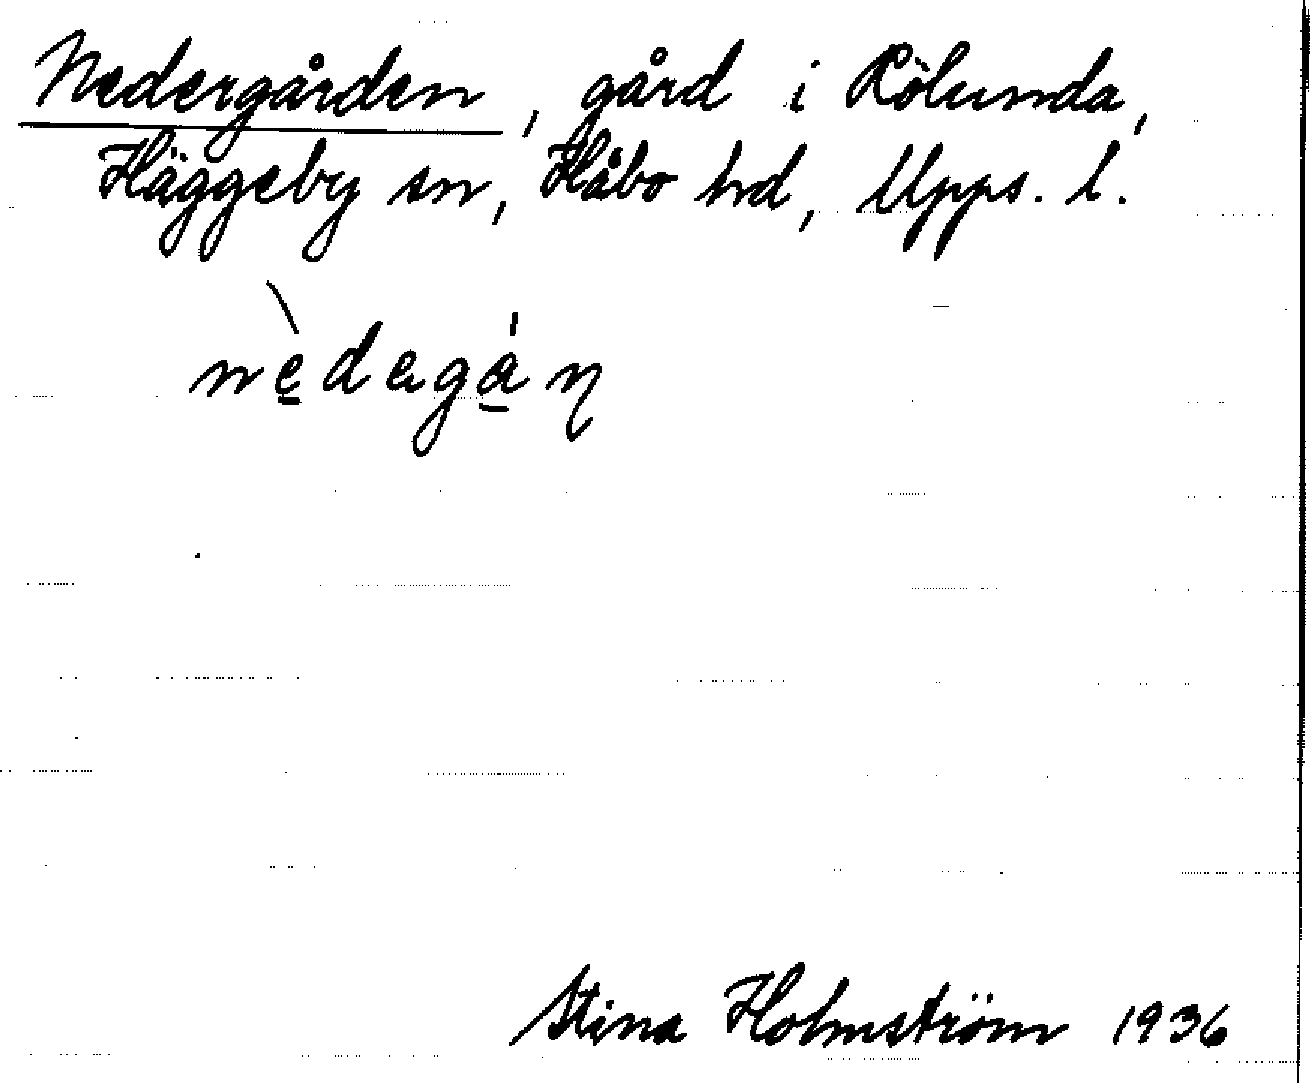 Nedergården, gård i Rölunda,
Häggeby sn, Håbo hrd, Upps. l.
Stina Holmström 1936